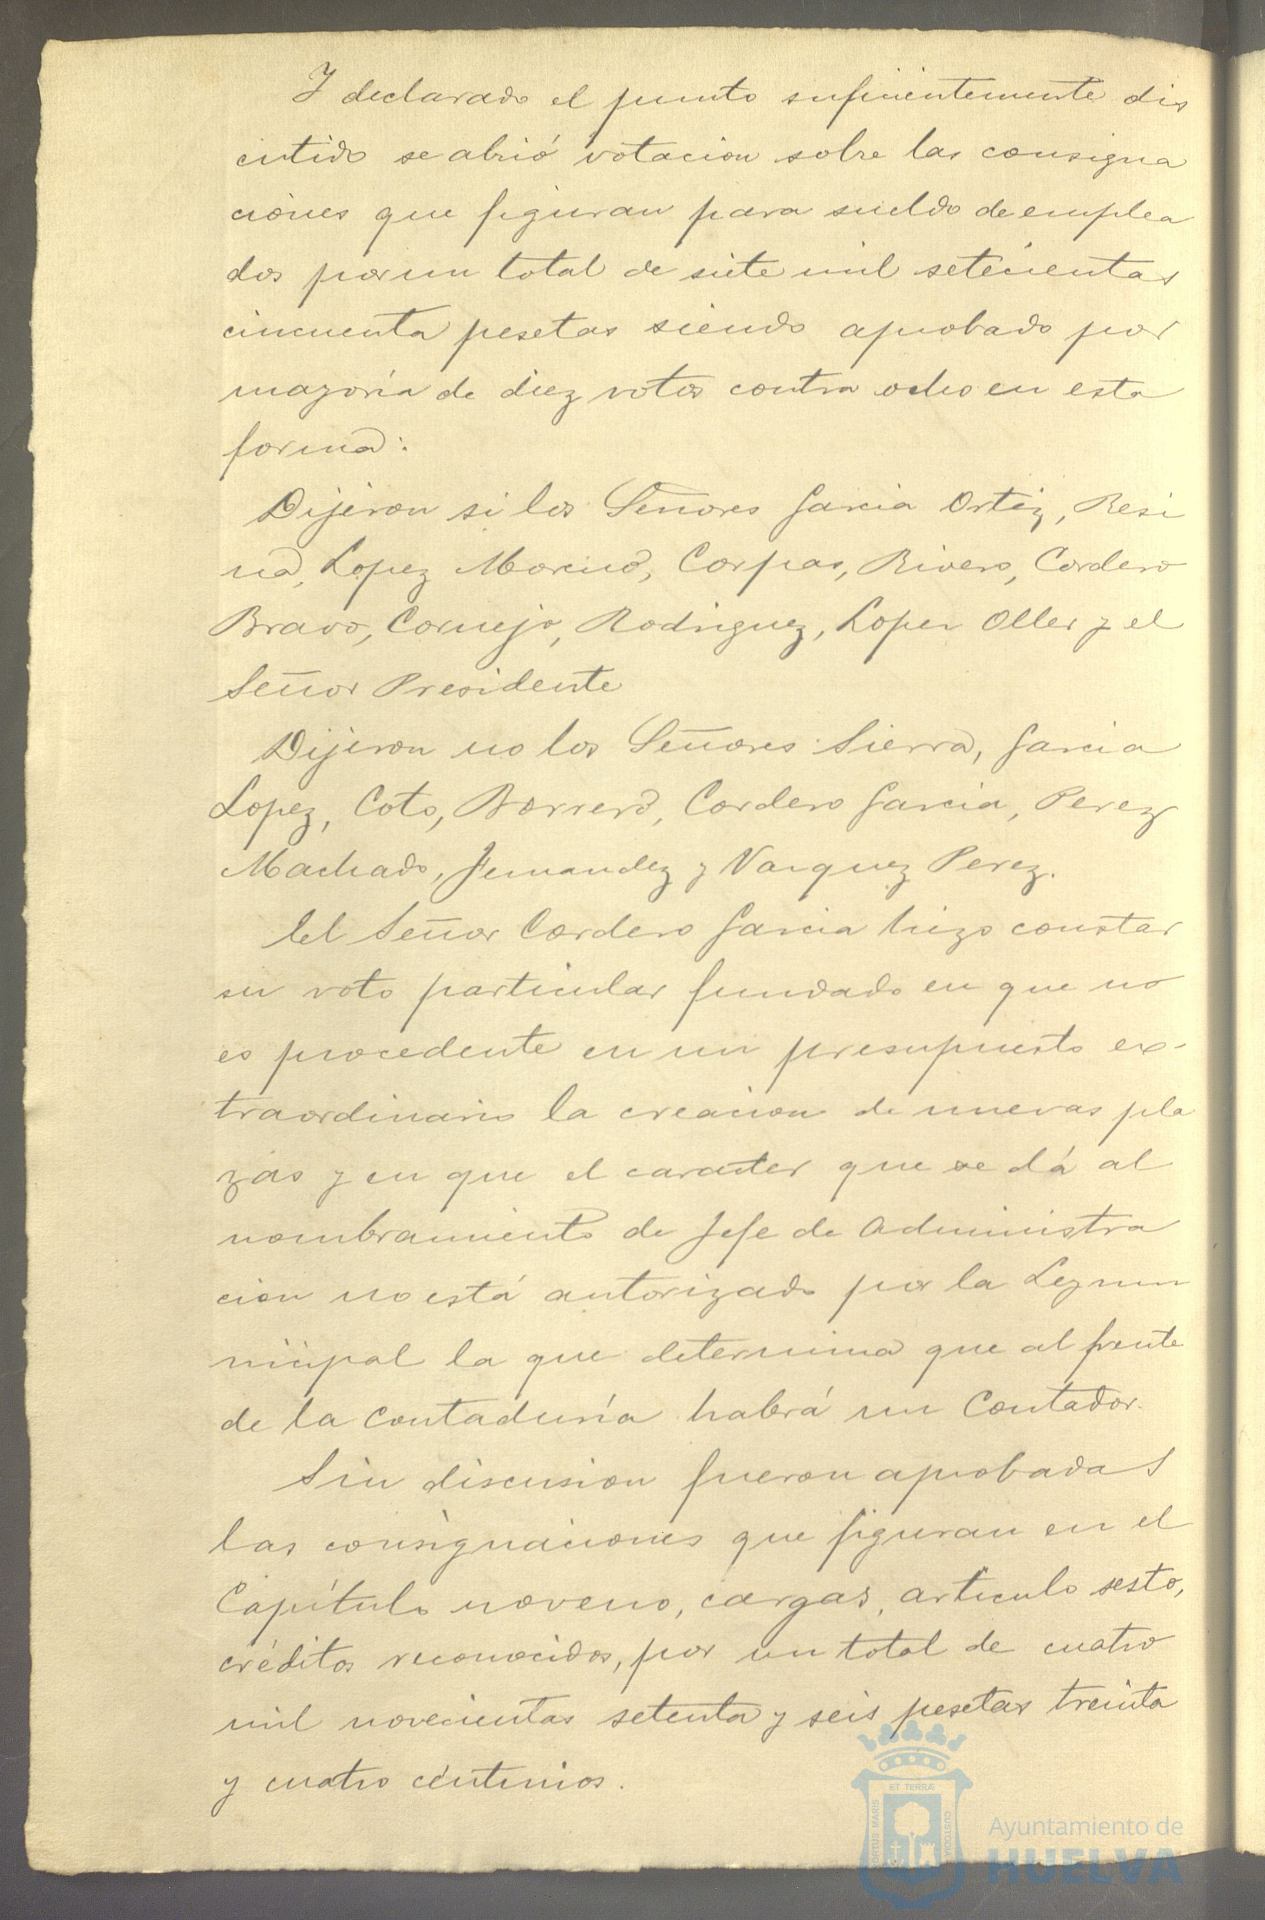 Y declarado el punto suficientemente dis
cutido se abrió votacion sobre las consigna
ciones que figuran para sueldo de emplea
dos por un total de siete mil setecientas
cincuenta pesetas siendo aprobado por
mayoría de diez votos contra ocho en esta
forma:
Dijeron si los Señores Garcia Ortiz, Resi
na, Lopez Moreno, Corpas, Rivero, Cordero
Bravo, Cornejo, Rodriguez, Lopez Oller y el
Señor Presidente
Dijeron no los Señores Sierra, Garcia
Lopez, Coto, Borrero, Cordero Garcia, Perez
Machado, Fernandez y Vazquez Perez.
El Señor Cordero Garcia hizo constar
su voto particular fundado en que no
es procedente en un presupuesto ex-
traordinario la creacion de nuevas pla
zas y en que el caracter que se dá al
nombramiento de Jefe de Administra
cion no está autorizado por la Ley mu
nicipal la que determina que al frente
de la Contaduría habrá un Contador.
Sin discusion fueron aprobadas
las consignaciones que figuran en el
Capítulo noveno, cargas, articulo sesto,
créditos reconocidos, por un total de cuatro
mil novecientas setenta y seis pesetas treinta
y cuatro céntimos.
ET TERRÆ
PORTUS MARIS
CUSTODIA
Ayuntamiento de
HUELVA